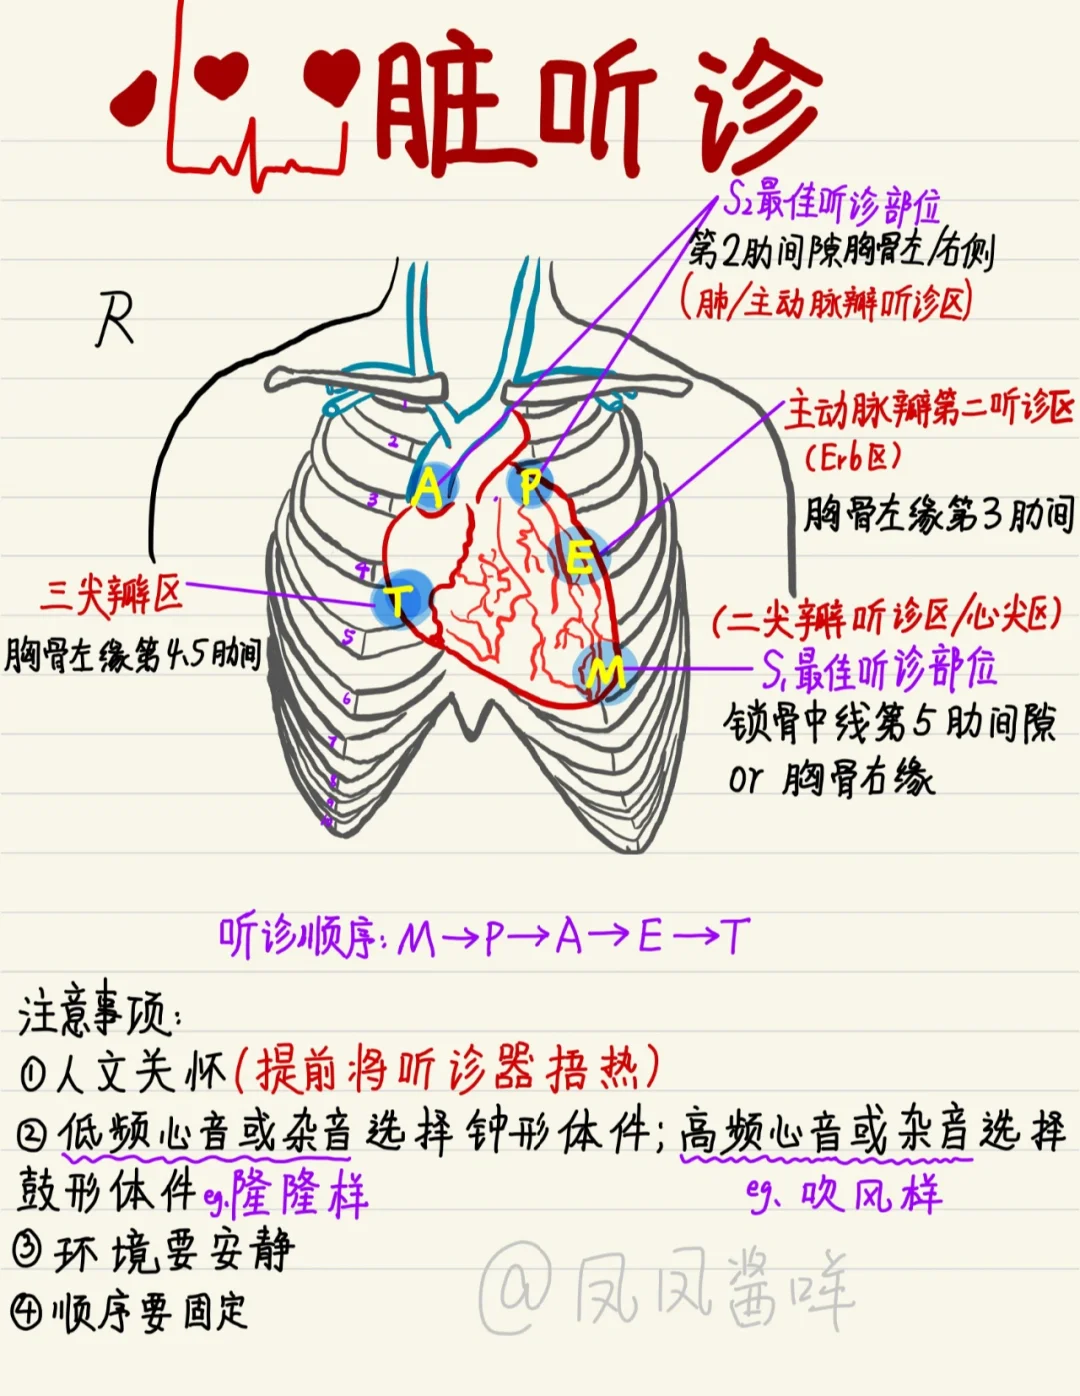 心脏听诊
S₂最佳听诊部位
第2肋间隙胸骨左/右侧
(肺/主动脉瓣听诊区)
R
主动脉瓣第二听诊区
(Erb区)
胸骨左缘第3肋间
1
2
3
4
5
6
7
8
9
10
A
P
E
T
M
三尖瓣区
胸骨左缘第4.5肋间
(二尖瓣听诊区/心尖区)
S₁最佳听诊部位
锁骨中线第5肋间隙
or 胸骨右缘
听诊顺序:M→P→A→E→T
注意事项:
①人文关怀(提前将听诊器捂热)
②低频心音或杂音选择钟形体件;高频心音或杂音选择
鼓形体件 eg.隆隆样 eg.吹风样
③环境要安静
④顺序要固定
@凤凤酱咩